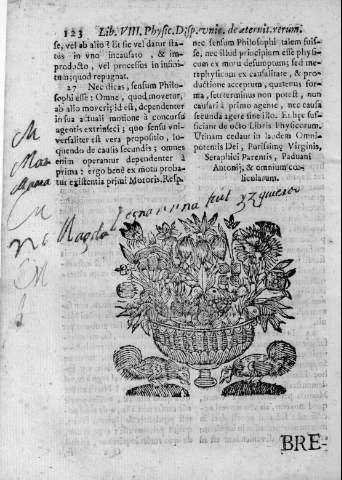 123 Lib. VIII. Physic. Disp. vnic. de æternit. rerum.
se, vel ab alio? Et sic vel datur sta-
tus in vno incausato, & im-
producto, vel processus in infini-
tum; quod repugnat.
27 Nec dicas, sensum Philoso-
phi esse: Omne, quod movetur,
ab alio moveri; id est, dependenter
in sua actuali motione à concursu
agentis extrinseci; quo sensu vni-
versaliter est vera propositio, lo-
quendo de causis secundis; omnes
enim operantur dependenter à
prima: ergo benè ex motu proba-
tur existentia primi Motoris. Resp.
nec sensum Philosophi talem fuis-
se, nec illud principium esse physi-
cum ex motu desumptum; sed me-
taphysicum ex causalitate, &
productione acceptum, quatenus for-
ma, seu terminus non potest, non
causari à primo agente, nec causa
secunda agere sine illo. Et hæc suf-
ficiant de octo Libris Physicorum.
Utinam cedant in laudem Omni-
potentis Dei, Purissimæ Virginis,
Seraphici Parentis, Paduani
Antonij, & omnium cœ-
licolarum.
BRE-